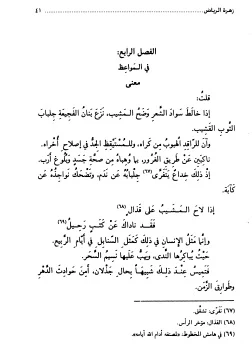 زهرة الرياض
٤١
الفصل الرابع:
في المواعظ
معنى
قلتُ:
إذا خالَطَ سوادَ الشَّعرِ وَضَحُ المَشيب، نَزَعَ بَنانُ الفَجيعةِ جِلبابَ
الثوبِ القَشيب.
وآنَ للرَّاقِدِ الهُبوبُ من كَراه، وللمُستَيْقِظِ الجِدُّ في إصلاحِ أُخراه.
ناكِبَيْنِ عَن طَريقِ الغُرور، بما وَهَباهُ من صحَّةِ جَسَدٍ وبُلوغِ أَرَب.
إذ ذَلكَ خِداعٌ يَتَفَرَّى(٦٧) جِلْبابُهُ عَن نَدَم، وتَضْحَكُ نَواجِذُهُ عن
كآبة.
إذا لاحَ المَشيبُ على قَذالٍ(٦٨)
فَقَد ناداكَ عَن كَثَبٍ رَحيلُ(٦٩)
وإنما مَثَلُ الإنسانِ في ذلكَ كَمَثَلِ السنابل في أيّام الربيع.
حَيثُ يُباكِرُها النَّدى، ويَهُبُّ عليها نَسيمُ السَّحَر.
فتَميسُ عِندَ ذلكَ شَبيهةً بحالِ جَذْلان، أمِنَ حوادثَ الدَّهرِ
وطوارقَ الزَّمَن.
(٦٧) تفرّى: تشقّق.
(٦٨) القذال: مؤخر الرأس.
(٦٩) في هامش المخطوط: «لمصنفه أدام الله أيامه».